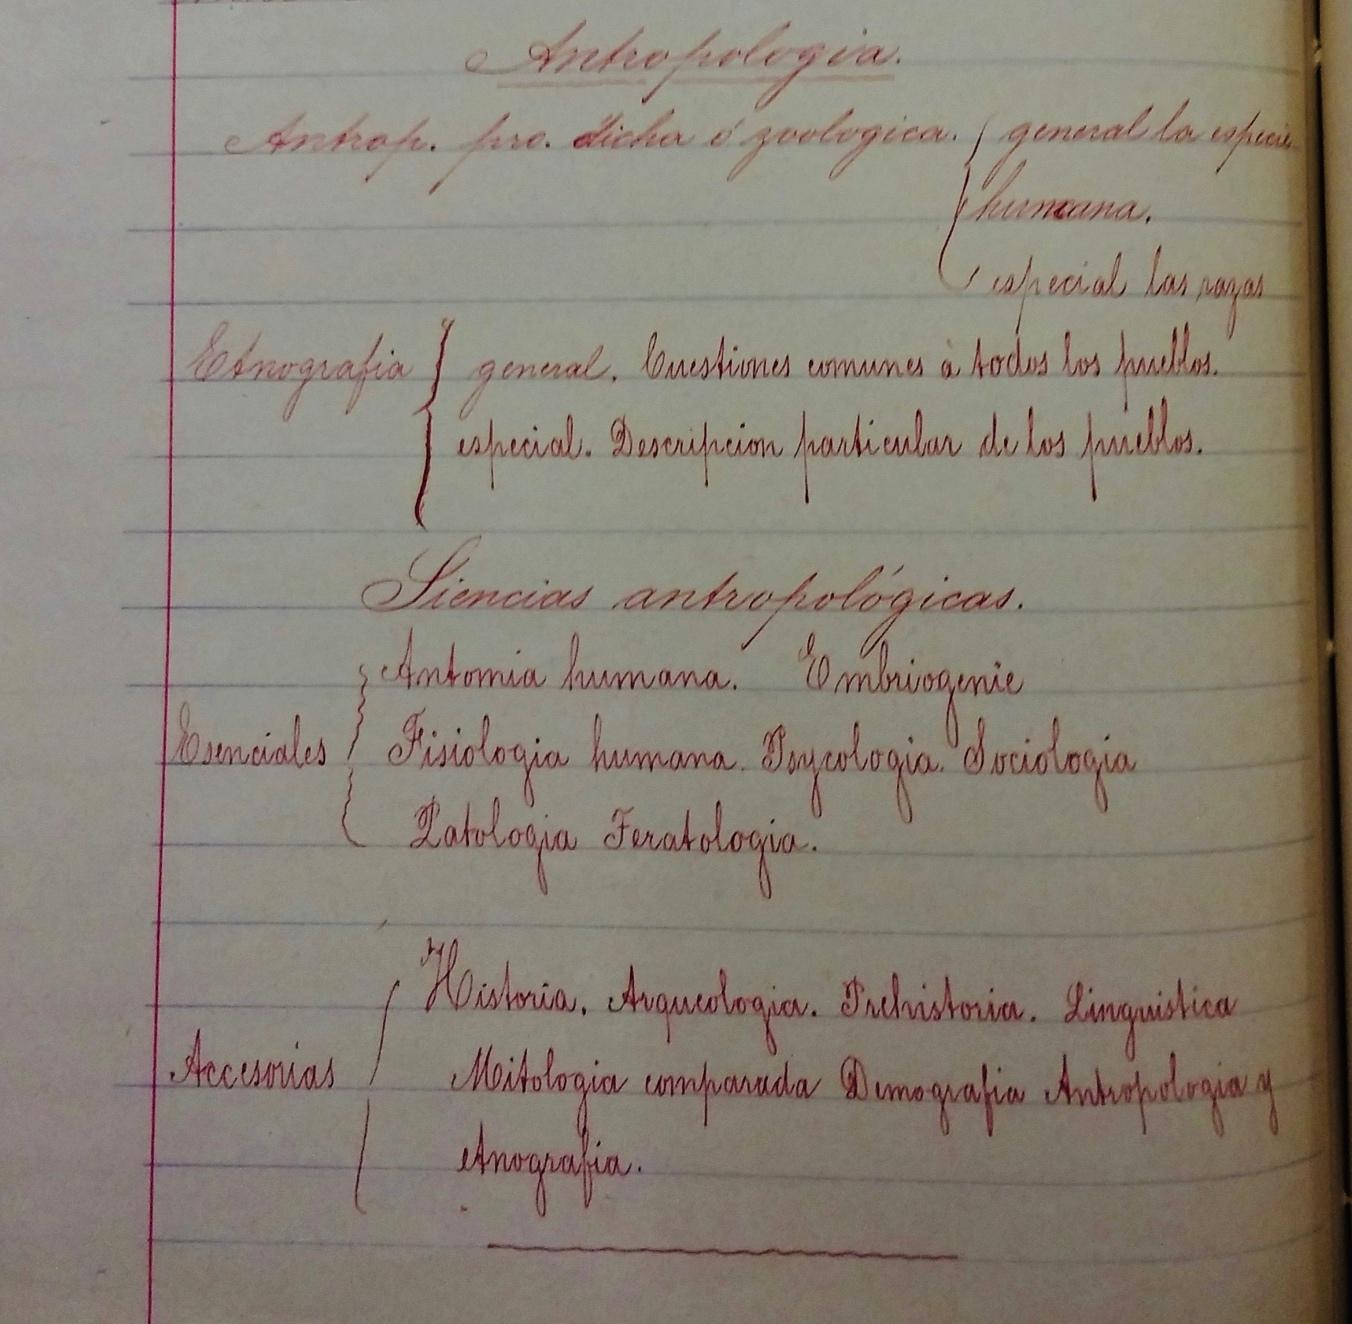 Antropologia.
Antrop. pro. dicha ó zoologica. general la especie
humana.
especial las razas
Etnografia general. Cuestiones comunes à todos los pueblos.
especial. Descripcion particular de los pueblos.
Siencias antropológicas.
Antomia humana. Embriogenie
Esenciales Fisiologia humana. Psycologia. Sociologia
Patologia Teratologia.
Historia. Arqueologia. Prehistoria. Linguistica
Accesorias Mitologia comparada Demografia Antropologia y
etnografia.